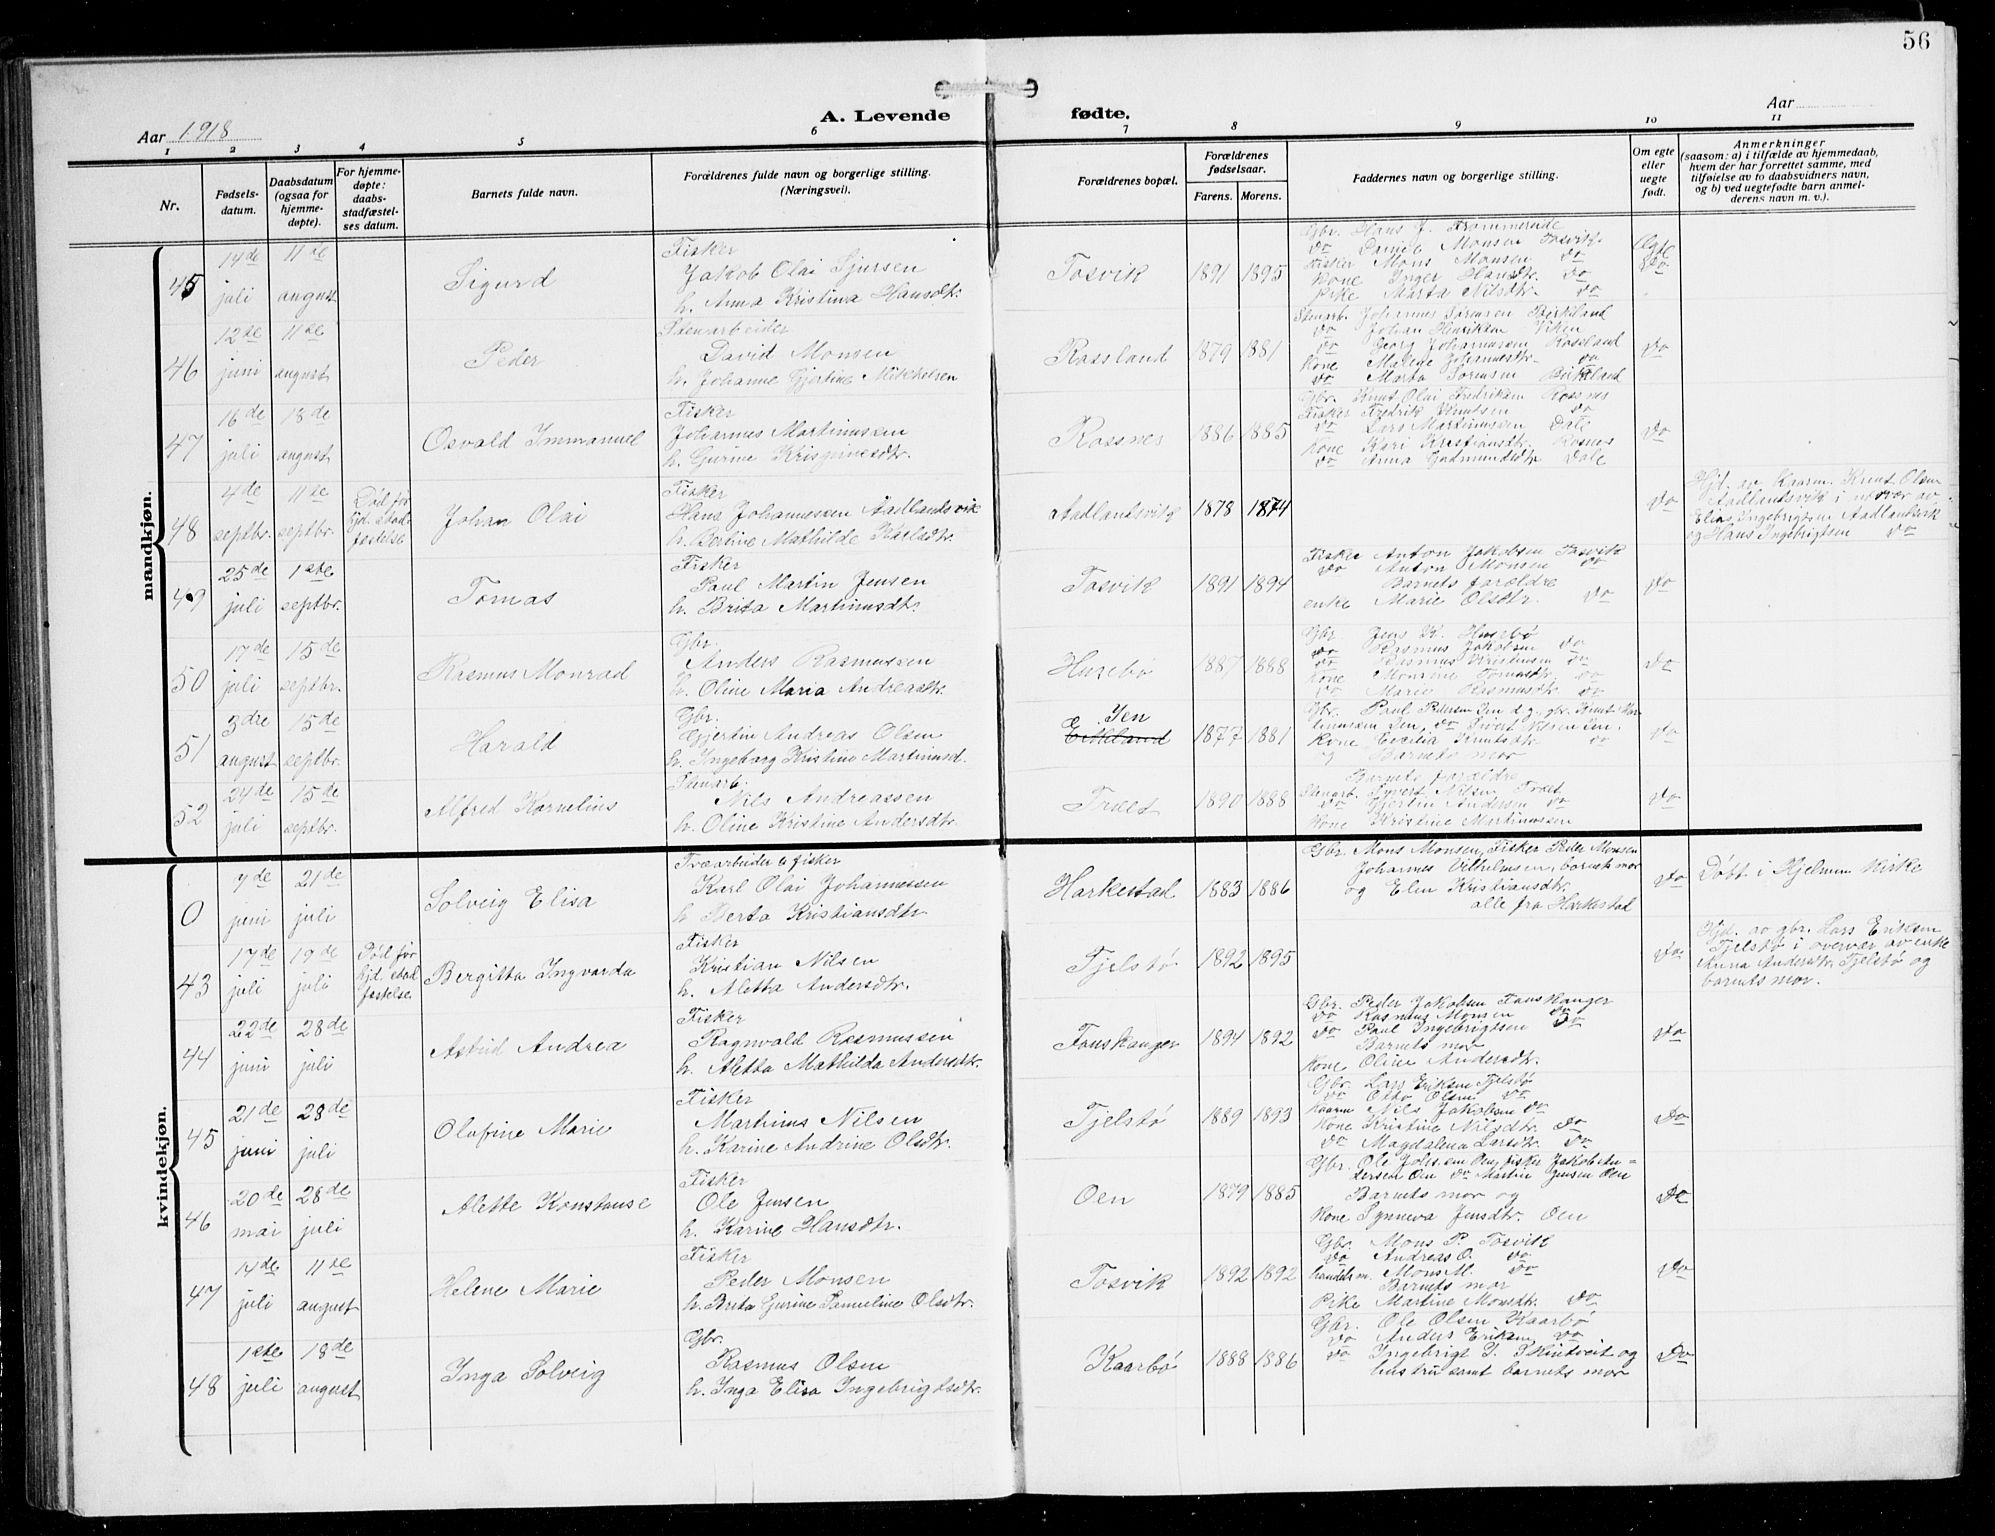 56
A. Levende fødte.
Aar 1918
Aar
1 2 3 4 5 6 7 8 9 10 11
Nr.
Fødsels-
datum.
Daabsdatum
(ogsaa for
hjemme-
døpte).
For hjemme-
døpte:
daabs-
stadfæstel-
ses datum.
Barnets fulde navn.
Forældrenes fulde navn og borgerlige stilling.
(Næringsvei).
Forældrenes bopæl.
Forældrenes
fødselsaar.
Farens. Morens.
Faddernes navn og borgerlige stilling.
Om egte
eller
uegte
født.
Anmerkninger
(saasom: a) i tilfælde av hjemmedaab,
hvem der har forrettet samme, med
tilføielse av to daabsvidners navn,
og b) ved uegtefødte barn anmel-
derens navn m. v.).
mandkjøn.
45 14de juli 11te august Sigurd
Fisker
Jakob Olai Sjursen
h. Anna Kristina Hansdtr.
Tosvik 1891 1895
Gbr. Hans J.
do Daniel Monsen Tosvik
Fisker Mons Monsen do
Kone Inger Hansdtr. do
Pike Marta Nilsdtr. do
Ægte
Do
46 12te juni 11te august Peder
Stenarbeider
David Monsen
h. Johanne Gjertine Mikkelsen
Rossland 1879 1881
Stenarb. Johannes Sørensen Birkeland
do Johan Henriksen Viken
do Georg Johannessen Rossland
Kone Malene Johannesdtr. do
do Marta Sørensen Birkeland
Do
47 16de juli 18de august Osvald Immanuel
Fisker
Johannes Martinussen
h. Gurine
Rossnes 1886 1885
Gbr. Knut Olai Fredriksen Rossnes
Fisker Fredrik Knutsen do
do Lars Martinussen Dale
Kone Kari Kristiansdtr. Rosnes
do Anna Gudmundsdtr Dale
Do
48 4de septbr. 11te septbr. Død før
hjd. stad-
fæstelse
Johan Olai
Fisker
Hans Johannessen Aadlandsvik
h. Bertine Mathilde Karlsdtr.
Aadlandsvik 1878 1874
Do
Hjd. av Kaarm. Knut Olsen
Aadlandsvik i nærvær av
Elias Ingebrigtsen Aadlandsvik
og Hans Ingebrigtsen do
49 25de juli 1ste septbr. Tomas
Fisker
Paul Martin Jensen
h. Brita Martinusdtr.
Tosvik 1891 1894
Fisker Anton Jakobsen Tosvik
do Anton Monsen do
Barnets forældre
enke Marie Olsdtr. do
Do
50 17de juli 15de septbr. Rasmus Monrad
Gbr.
Anders Rasmussen
h. Oline Maria Andreasdtr.
Husebø 1887 1888
Gbr. Jens K. Husebø
do Rasmus Jakobsen do
do Rasmus Kristensen do
Kone Monsine Tomasdtr. do
do Marie Rasmusdtr. do
Do
51 3dre august 15de septbr. Harald
Gbr.
Gjertin Andreas Olsen
h. Ingeborg Kristine Martinusd.
Ien
1877 1881
Gbr. Paul Pedersen Ien d.g., gbr. Knut Mar-
tinussen Ien, do Sivert Nilsen Ien.
Kone Cecilia Knutsdtr. do
og Barnets mor
Do
52 24de juli 15de septbr. Alfred Kornelius
Stenarb.
Nils Andreassen
h. Oline Kristine Andersdtr.
Træet 1890 1888
Barnets forældre
Stenarb. Syvert Nilsen Træet
do Gjertin Andersen do
Kone Kristine Martinussen
Do
kvindekjøn.
0 7de juni 21de juli Solveig Elisa
Træarbeider & fisker
Karl Olai Johannessen
h Berta Kristiansdtr
Harkestad 1883 1886
Gbr. Mons Monsen, Fisker Peder Monsen
Johannes Vilhelmsen, barnets mor
og Elen Kristiansdtr.
alle fra Harkestad
Do
Døbt i Hjelmen kirke
43 17de juli 19de juli Død før
hjd. stad
fæstelse
Bergitta Ingvarda
Fisker
Kristian Nilsen
h. Aletta Andersdtr.
Tjelstø 1892 1895
Do
Hjd. av gbr. Lars Eriksen
Tjelstø i overvær av enke
Anna Andersdtr. Tjelstø og
barnets mor.
44 22de juni 28de juli Astrid Andrea
Fisker
Ragnvald Rasmussen
h. Aletta Mathilda Andersdtr.
Fonskanger 1894 1892
Gbr. Peder Jakobsen Fonskanger
do Rasmus Monsen do
do Paul Ingebrigtsen do
Barnets mor
Kone Oline Andersdtr.
Do
45 21de juni 28de juli Olafine Marie
Fisker
Martinus Nilsen
h. Karine Andrine Olsdtr.
Tjelstø 1889 1893
Gbr. Lars Eriksen Tjelstø
do Otto Olsen do
Kaarm Nils Jakobsen do
Kone Kristine Nilsdtr. do
do Magdalena Larsdtr. do
Do
46 20de mai 28de juli Alette Konstanse
Fisker
Ole Jensen
h. Karine Hansdtr.
Oen 1879 1885
Gbr. Ole Johs.sen Oen, fisker Jakob An-
dersen Oen do Martin Jensen Oen
Barnets mor og
Kone Synneva Jensdtr. Oen
Do
47 14de juli 11te august Helene Marie
Fisker
Peder Monsen
h. Brita Gurine Samueline Olsdtr.
Tosvik 1892 1892
Gbr. Mons P. Tosvik
do Andreas O. do
handelsm. Mons M. do
Barnets mor
Pike Martine Monsdtr. do
Do
48 1ste juli 18de august Inga Solveig
Gbr.
Rasmus Olsen
h. Inga Elisa Ingebrigtsdtr.
Kaarbø 1888 1886
Gbr. Ole Olsen Kaarbø
do Anders Eriksen do
do Ingebrigt I. Skutveit og
hustru samt barnets mor
Do